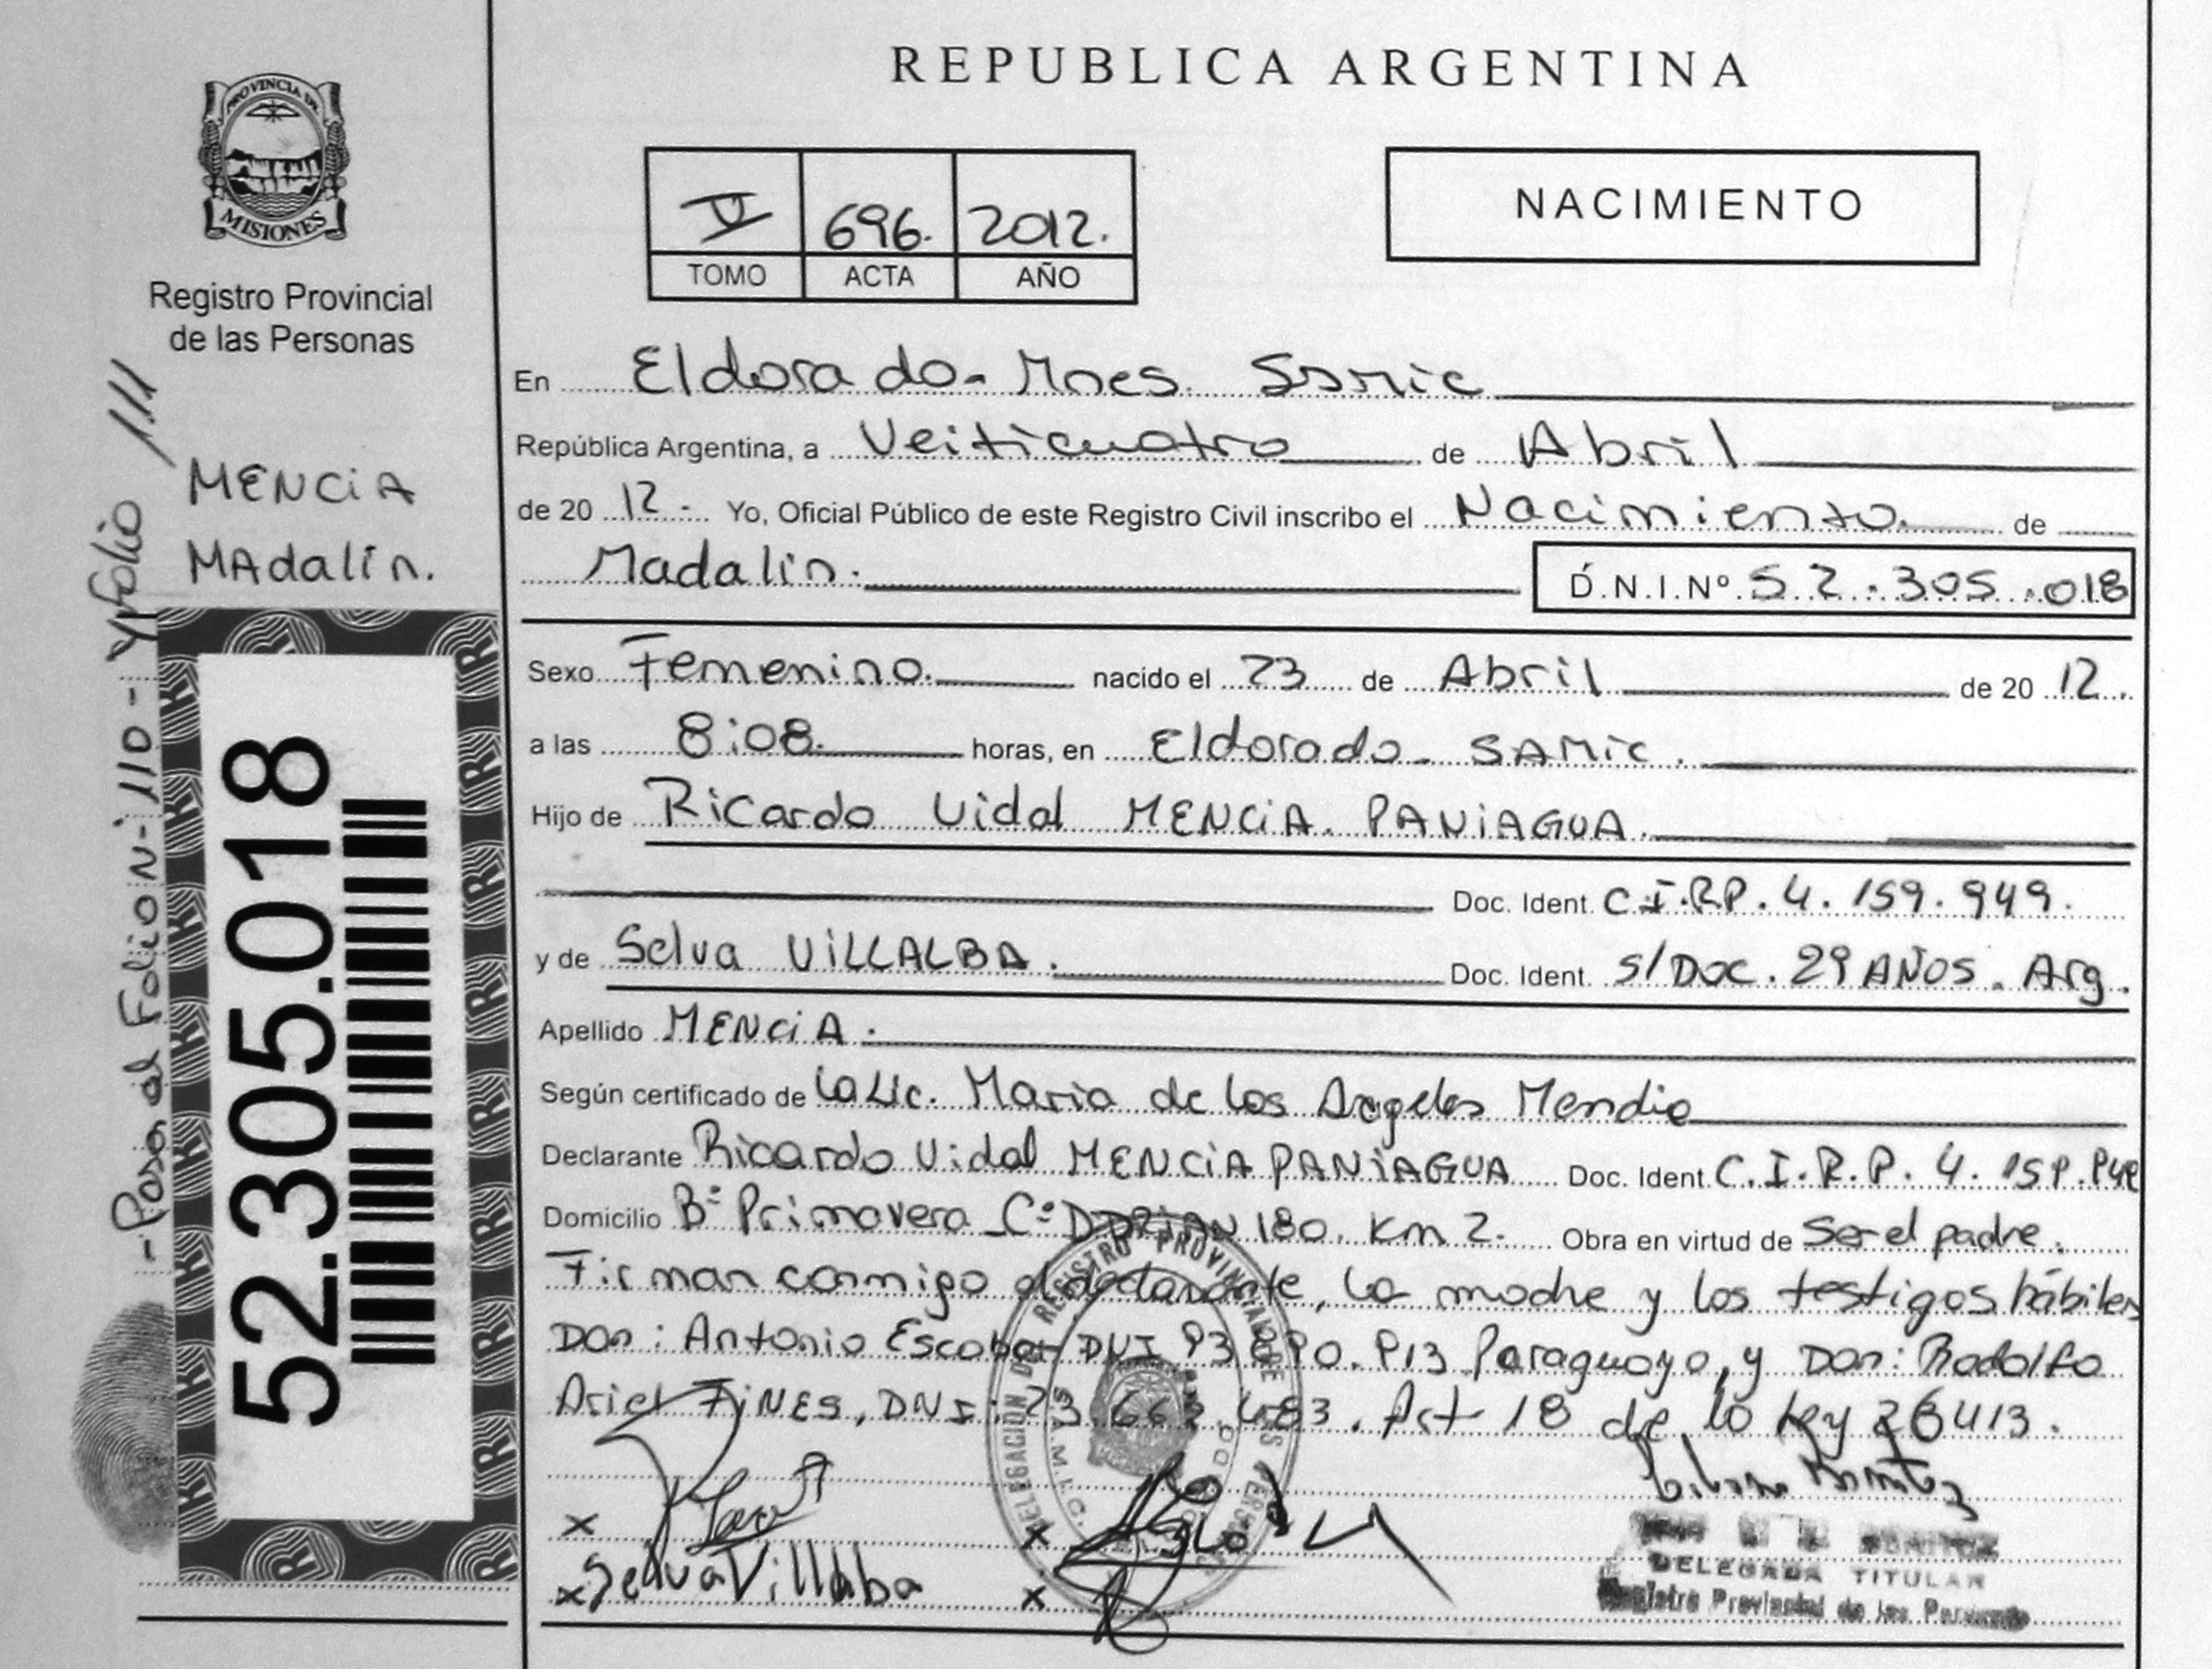 REPUBLICA ARGENTINA
PROVINCIA DE
MISIONES
Registro Provincial
de las Personas
V 696. 2012.
TOMO ACTA AÑO
NACIMIENTO
MENCiA
MAdalín.
-Pasa al Folio N- 110 - y folio 111
52.305.018
En Eldorado- Mnes. Samic
República Argentina, a Veiticuatro de Abril
de 20 12- Yo, Oficial Público de este Registro Civil inscribo el Nacimiento. de
Madalin. D.N.I.Nº 52.305.018
Sexo Femenino. nacido el 23 de Abril de 20 12.
a las 8:08. horas, en Eldorado. SAMic.
Hijo de Ricardo Vidal MENCiA. PANiAGUA.
Doc. Ident. C.I.R.P. 4.159.949.
y de Selva ViLLALBA. Doc. Ident. S/DOC. 29 AÑOS. Arg.
Apellido MENCiA.
Según certificado de la Lic. Maria de los Angeles Mendio
Declarante Ricardo Vidal MENCiA PANiAGUA Doc. Ident. C.I.R.P. 4.159.949
Domicilio Bº Primavera Cº 180. Km 2. Obra en virtud de Ser el padre.
Firman conmigo el declarante, la madre y los testigos hábiles
Don: Antonio Escobar DNI 93 890.913 Paraguayo, y Don: Rodolfo
Ariel FiNES, DNI: 23.662.483. Art 18 de la Ley 26413.
REGISTRO PROVINCIAL DE LAS PERSONAS
DELEGACION
S.A.M.I.C.
x
x
x Selva Villalba
x
DELEGADA TITULAR
Registro Provincial de las Personas